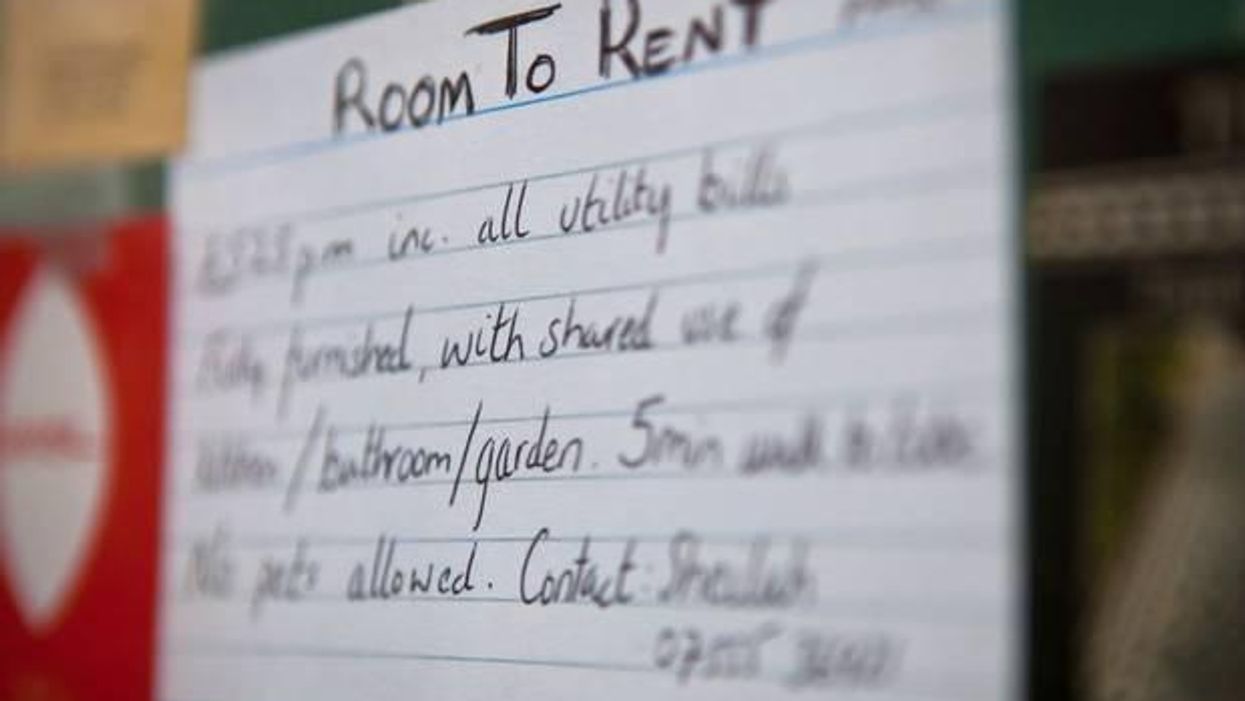 ROOM TO RENT
pm inc. all utility bills
Fully furnished, with shared use of
kitchen/bathroom/garden. 5 min walk to
No pets allowed. Contact: